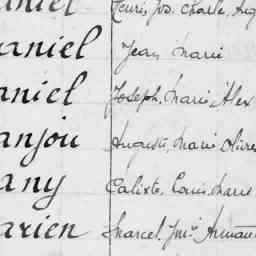 aniel Henri, Jos. Charle, Aug
aniel Jean Marie
aniel Joseph, Marie Alex
anjou Auguste, Marie Olivie
any Calixte, Louis, Marie
arien Marcel, Jn. Arman